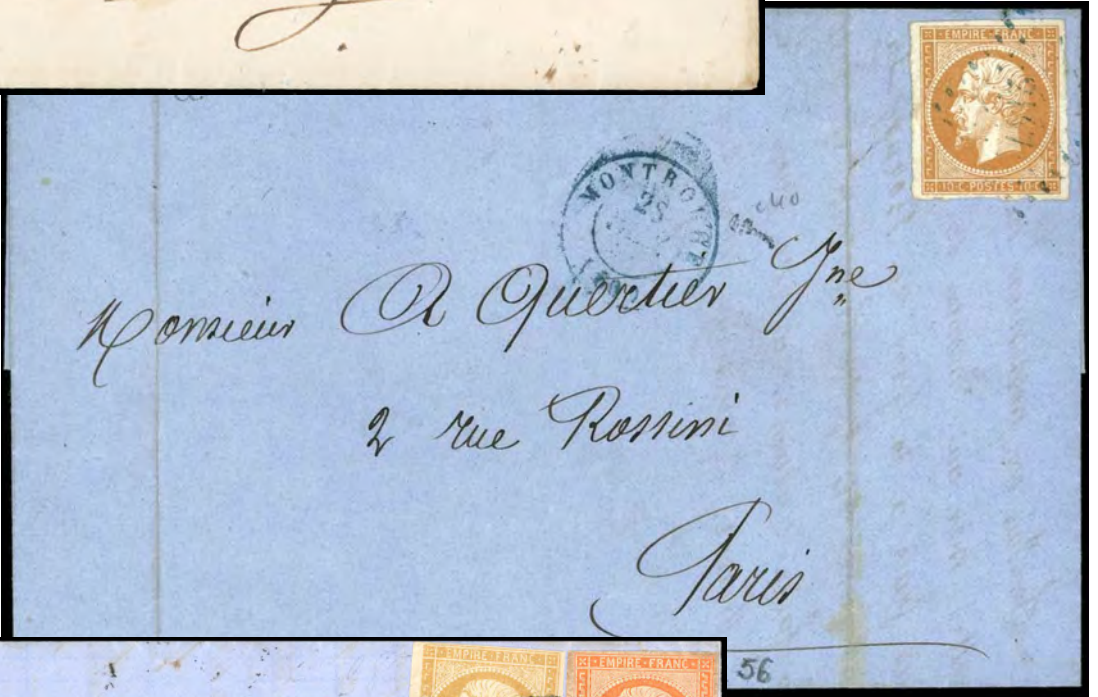 EMPIRE FRANC
10 C POSTES 10 C
MONTROUGE
28
Monsieur A Quertier Jne
2 rue Rossini
Paris
EMPIRE FRANC
EMPIRE FRANC
56